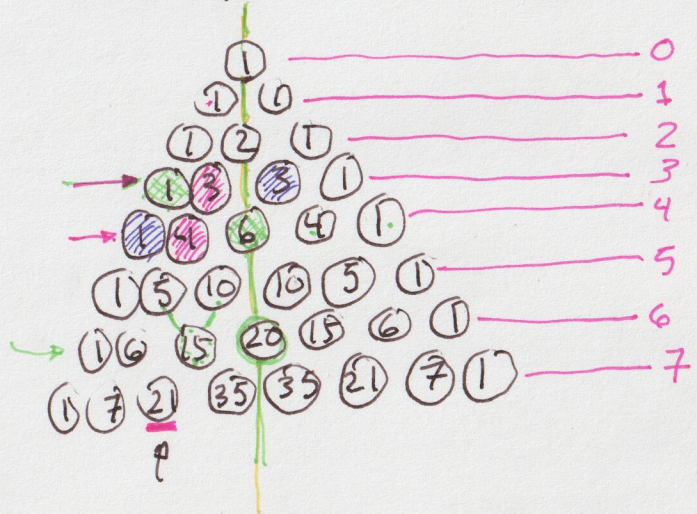 1 0
1 1 1
1 2 1 2
1 3 3 1 3
1 4 6 4 1 4
1 5 10 10 5 1 5
1 6 15 20 15 6 1 6
1 7 21 35 35 21 7 1 7